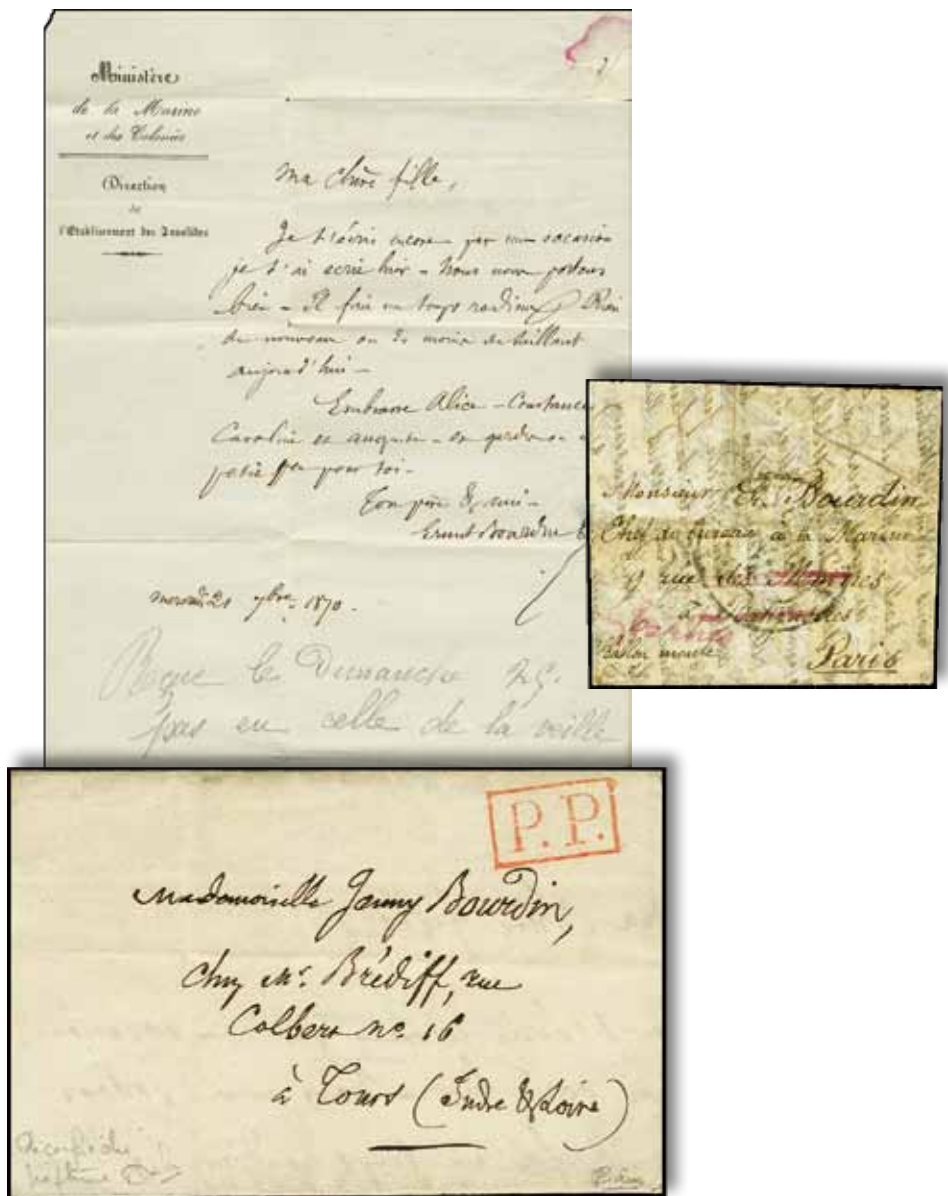 Ministère
de la Marine
et des Colonies
Direction
de
l'Etablissement des Invalides
Ma chère fille,
Je t'écris encore par une occasion
je t'ai écrit hier - Nous nous portons
bien - Il fait un temps radieux Rien
de nouveau ou du moins de saillant
aujourd'hui -
Embrasse Alice - Constance
Caroline et auguste - et garde
pour toi -
Ton père & ami -
Ernest Bourdin
mercredi 21 7bre 1870.
Reçue le Dimanche 25.
pas eu celle de la veille
Monsieur E. Bourdin
Chef de bureau à la Marine
rue des
à
Ballon monté
Paris
P.P.
Mademoiselle Jenny Bourdin,
chez Mr. Brédiff, rue
Colbert no. 16
à Tours (Indre & Loire)